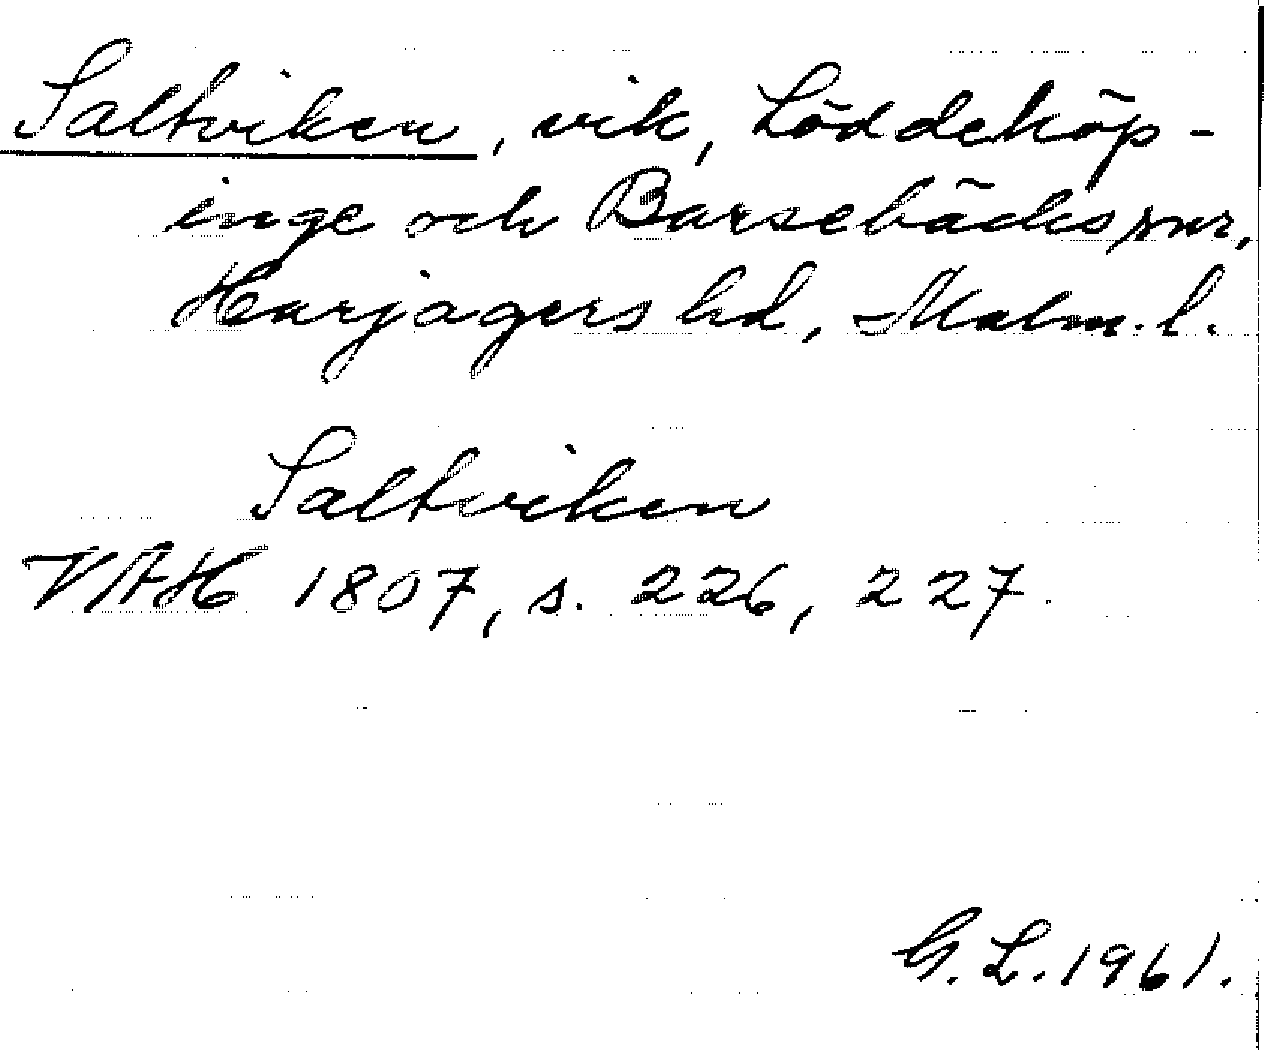 Saltviken, vik, Löddeköp-
inge och Barsebäcks snr,
Harjagers hd, Malm. l.
Saltviken
VAH 1807, s. 226, 227.
G. L. 1961.